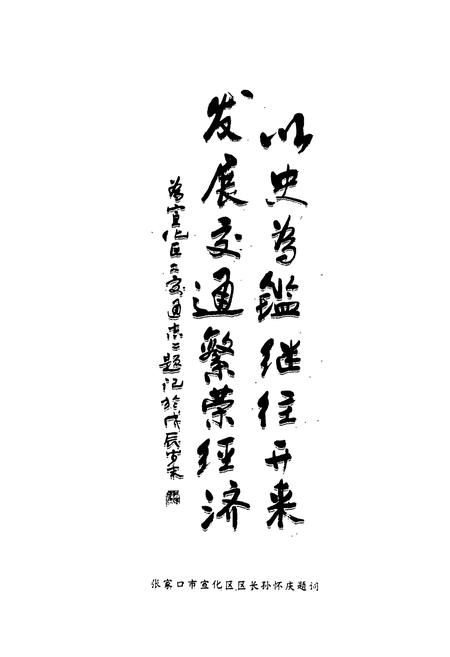 以史为鑑继往开来
发展交通繁荣经济
为宣化区交通志题记於戊辰岁末
张家口市宣化区区长孙怀庆题词